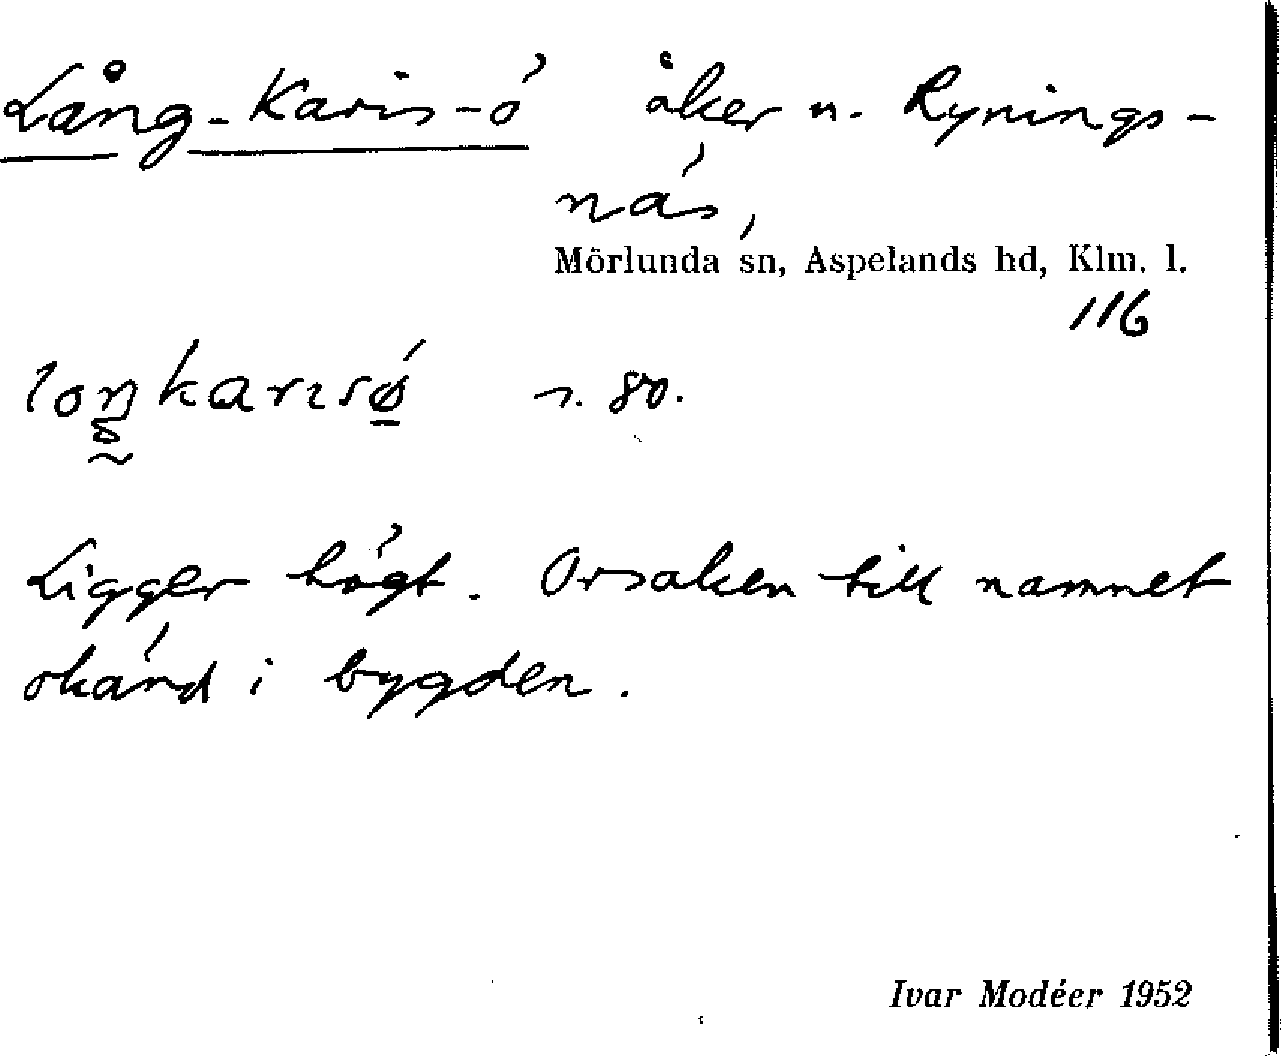 Lång-Karis-ö åker n. Rynings-
näs,
Mörlunda sn, Aspelands hd, Klm. l.
116
loŋkarısǿ s. 80.
Ligger högt. Orsaken till namnet
okänd i bygden.
Ivar Modéer 1952